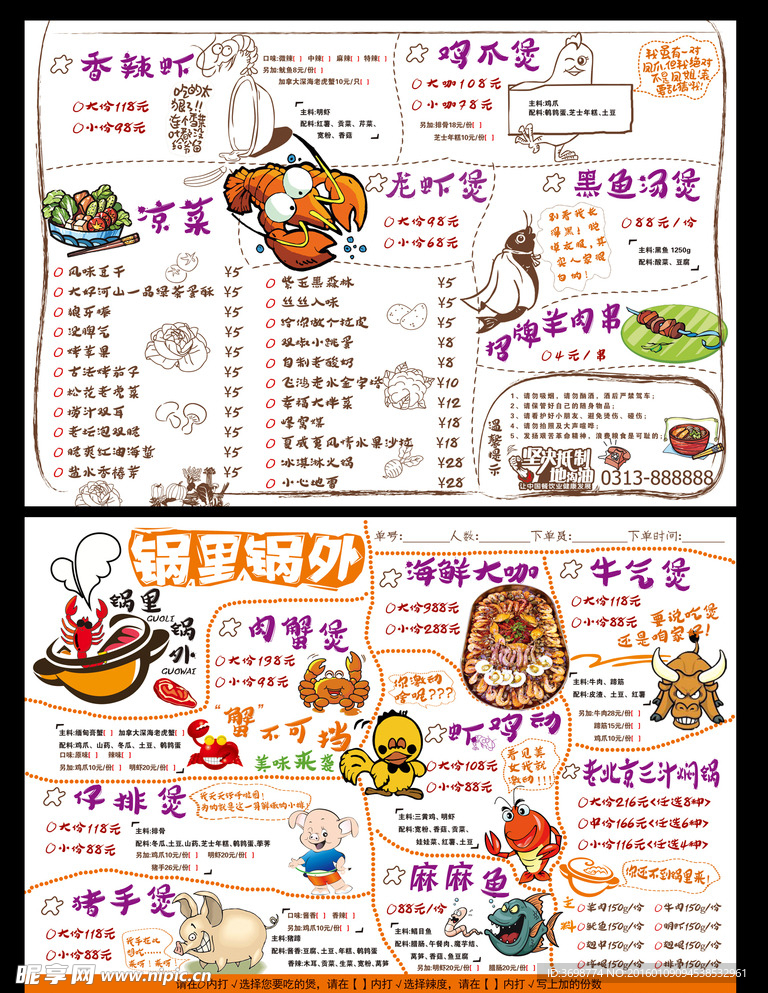 香辣虾
大份118元
小份98元
口味:微辣[ ] 中辣[ ] 麻辣[ ] 特辣[ ]
另加:鱿鱼8元/份[ ]
加拿大深海老虎蟹10元/只[ ]
主料:明虾
配料:红薯、贡菜、芹菜、
宽粉、香菇
鸡爪煲
大咖108元
小咖98元
另加:排骨18元/份[ ]
芝士年糕10元/份[ ]
主料:鸡爪
配料:鹌鹑蛋,芝士年糕、土豆
我虽有一对
凤爪,但我绝对
不是凤姐,请
要弘扬我!
凉菜
风味豆干 ¥5
大好河山一品绿茶蛋酥 ¥5
¥5
¥5
烤苹果 ¥5
古法烤茄子 ¥5
松花老虎菜 ¥5
捞汁双耳 ¥5
老坛泡双脆 ¥5
晓爽红油海蜇 ¥5
盐水香椿芽 ¥5
龙虾煲
大份98元
小份68元
紫玉黑森林 ¥5
丝丝入味 ¥5
给你做个拉皮 ¥5
双椒小跳蛋 ¥8
自制老酸奶 ¥8
飞鸿老水金字塔 ¥10
幸福大拌菜 ¥12
蜂窝煤 ¥18
夏威夷风情水果沙拉 ¥18
冰淇淋火锅 ¥28
小心地雷 ¥28
黑鱼汤煲
88元/份
主料:黑鱼 1250g
配料:酸菜、豆腐
招牌羊肉串
4元/串
温馨提示
1、请勿吸烟，请勿酗酒，酒后严禁驾车;
2、请保管好自己的随身物品;
3、请看护好小朋友、避免烫伤、碰伤;
4、请勿拍照及大声喧哗;
5、发扬艰苦革命精神，浪费粮食是可耻的;
坚决抵制
地沟油
让中国餐饮业健康发展
0313-888888
锅里锅外
单号: 人数: 下单员: 下单时间:
锅里
GUOLI
锅外
GUOWAI
肉蟹煲
大份198元
小份98元
主料:缅甸膏蟹[ ] 加拿大深海老虎蟹[ ]
配料:鸡爪、山药、冬瓜、土豆、鹌鹑蛋
口味:原味[ ] 辣味[ ]
另加:鸡爪10元/份[ ] 明虾20元/份[ ]
“蟹”不可挡
美味来袭
海鲜大咖
大份988元
小份288元
你激动
啥呢???
牛气煲
大份118元
小份88元
要说吃煲
还是咱家好!
主料:牛肉、蹄筋
配料:皮渣、土豆、红薯
另加:牛肉28元/份[ ]
蹄筋15元/份[ ]
鸡爪10元/份[ ]
虾鸡动
大份108元
小份88元
看见美
女我就
激动!!!
主料:三黄鸡、明虾
配料:宽粉、香菇、贡菜、
娃娃菜、红薯、土豆
老北京三汁焖锅
大份216元<任选8种>
中份166元<任选6种>
小份116元<任选4种>
你还不到锅里来!
主料
羊肉150g/份 牛肉150g/份
鱿鱼150g/份 明虾150g/份
翅中150g/份 翅根150g/份
鸡爪150g/份 排骨150g/份
仔排煲
大份118元
小份88元
主料:排骨
配料:冬瓜,土豆,山药,芝士年糕、鹌鹑蛋,荸荠
另加:鸡爪10元/份[ ] 明虾20元/份[ ]
猪手26元/份[ ]
猪手煲
大份118元
小份88元
口味:酱香[ ] 香辣[ ]
另加:鸡爪10元/份[ ]
主料:猪蹄
配料:酱香:豆腐、土豆、年糕、鹌鹑蛋
香辣:木耳、贡菜、生菜、宽粉、莴笋
麻麻鱼
88元/份
主料:鲷目鱼
配料:腊肠、午餐肉、魔芋结、
莴笋、香菇、鱼豆腐
另加:明虾20元/份[ ] 腊肠20元/份[ ]
请在O内打√选择您要吃的煲，请在【 】内打√选择辣度，请在【 】内打√写上加的份数
昵享网 www.nipic.cn
ID:3698774 NO:20160109094538532961